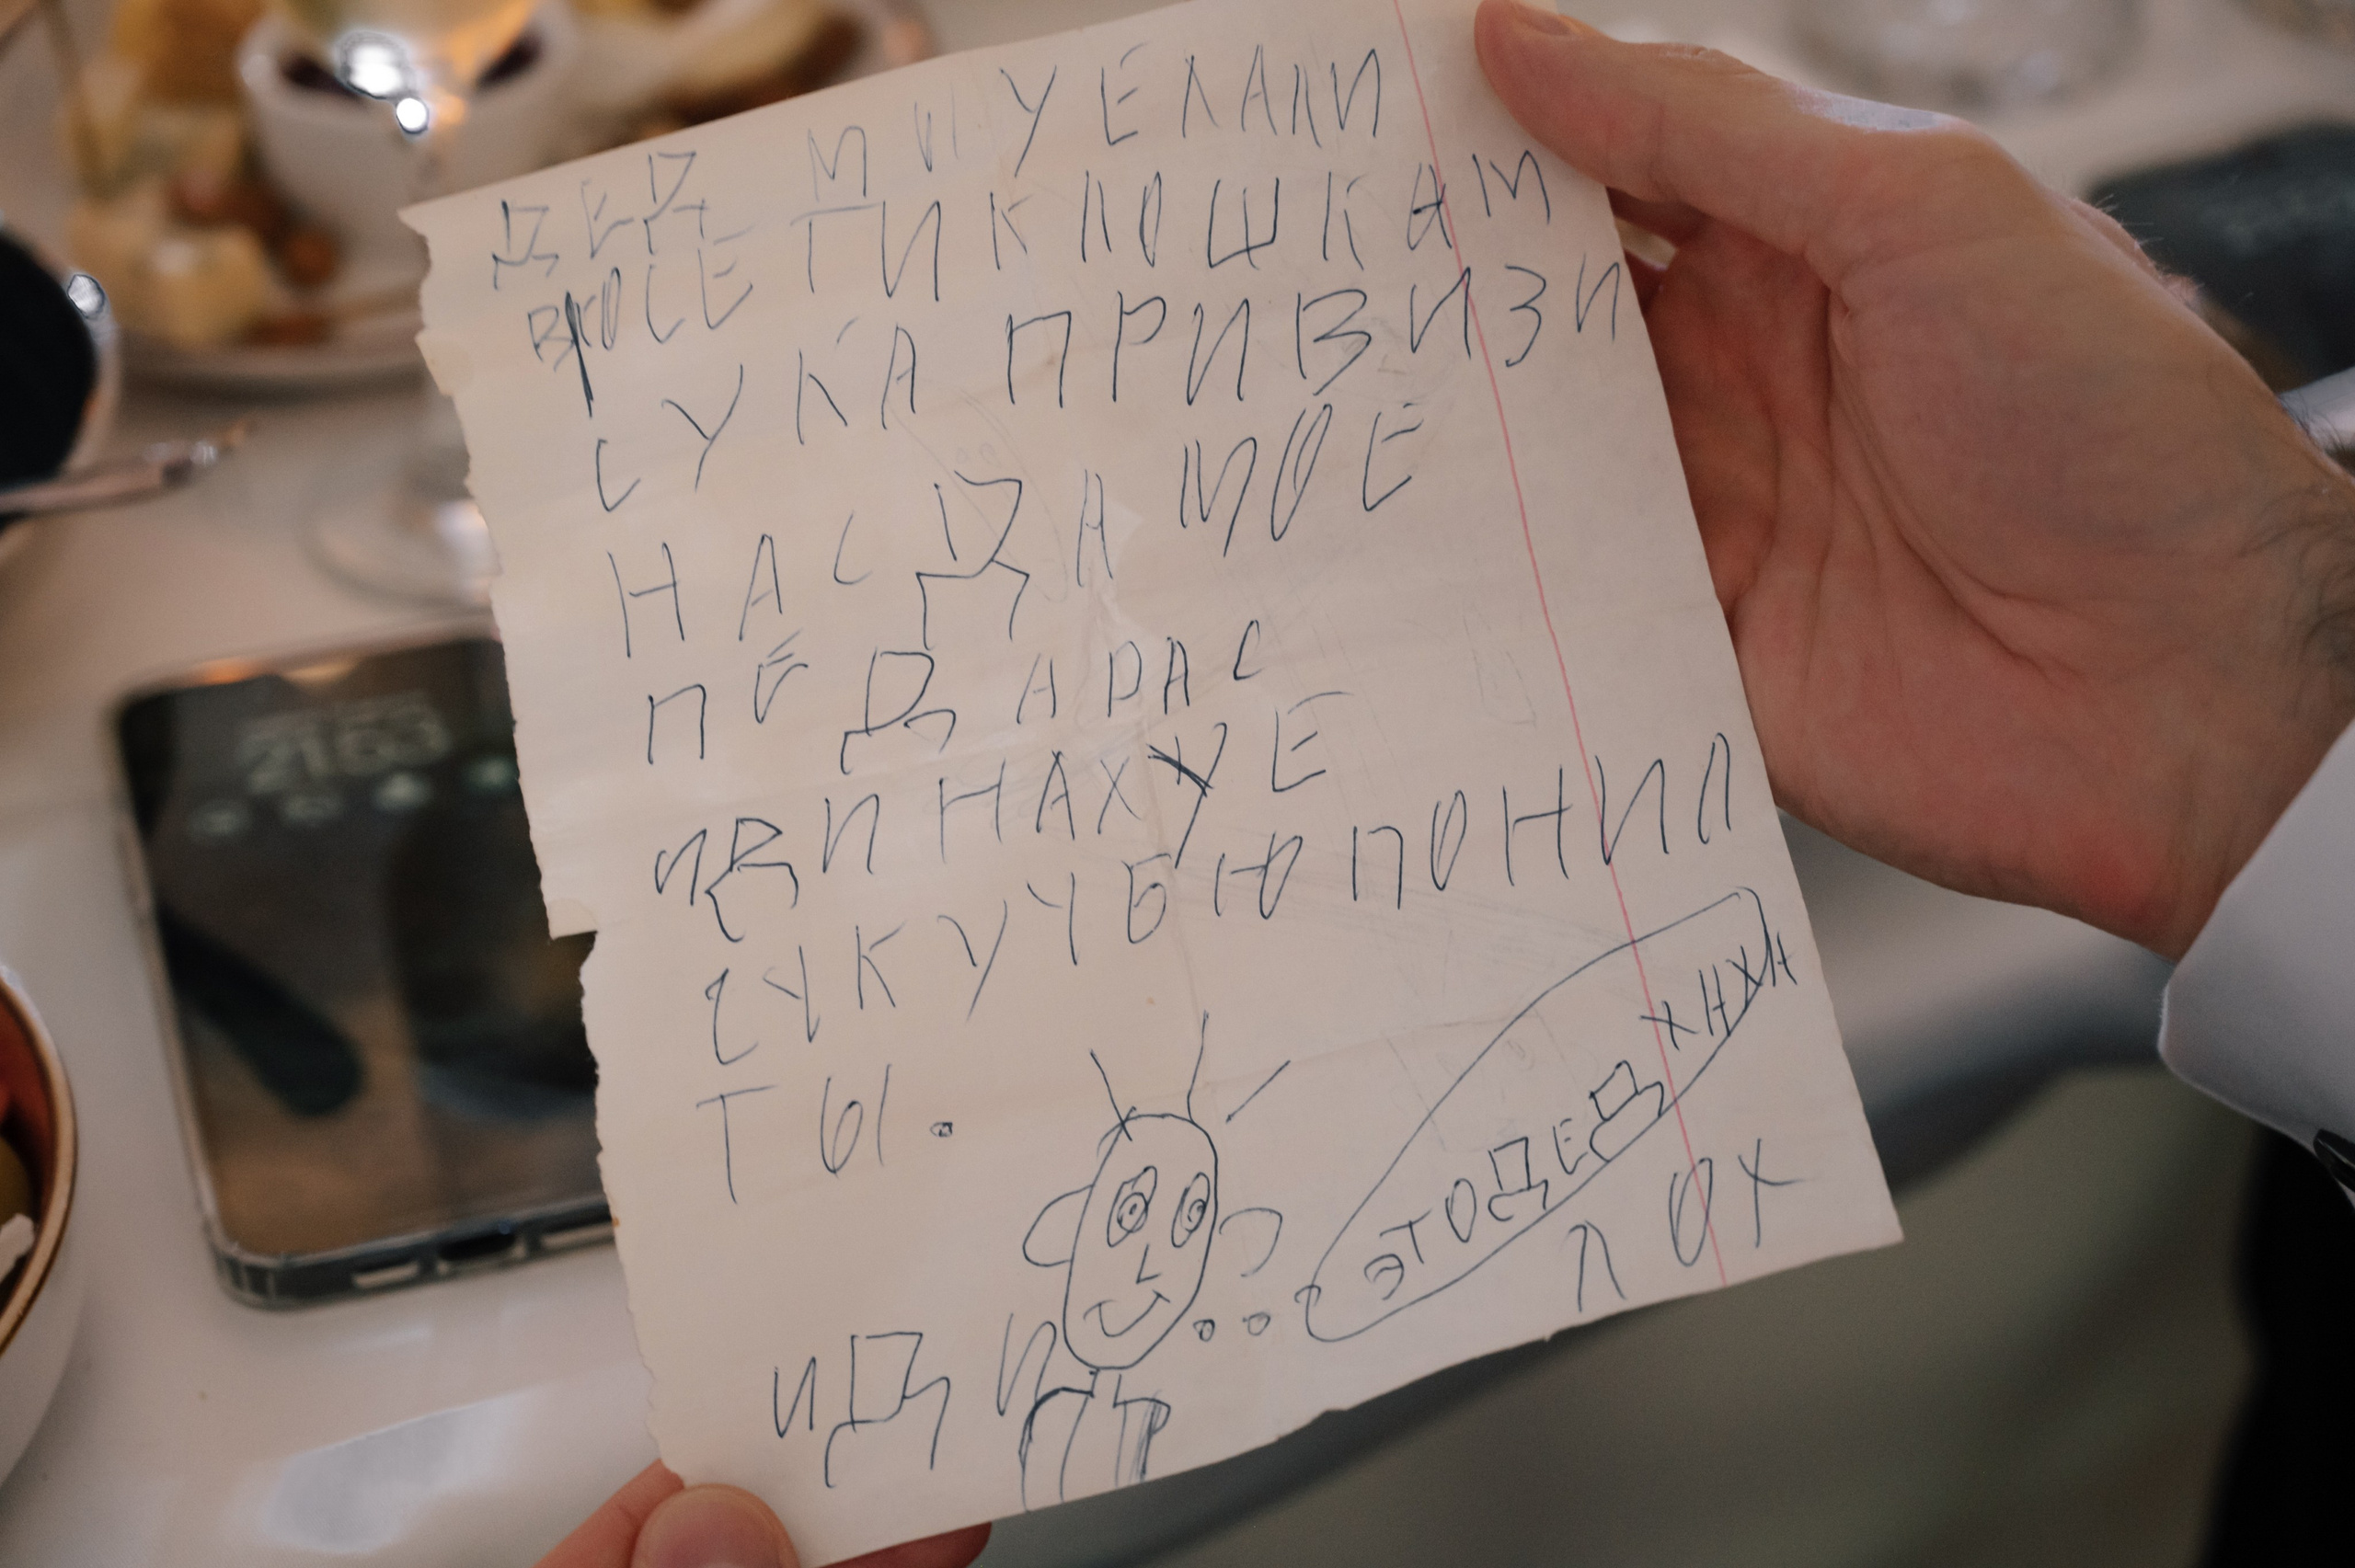 ДЕД МЫ УЕЛАЛИ
ВЮСЕТИ К ЛОШКАМ
СУКА ПРИВИЗИ
НАС ДАМОЕ
ПЕДАРАС
ИДИ НАХУЕ
СУКУ УБЮ ПОНИЛ
ТЫ.
ЭТО ДЕД ХАХА
ЛОХ
ИДИ